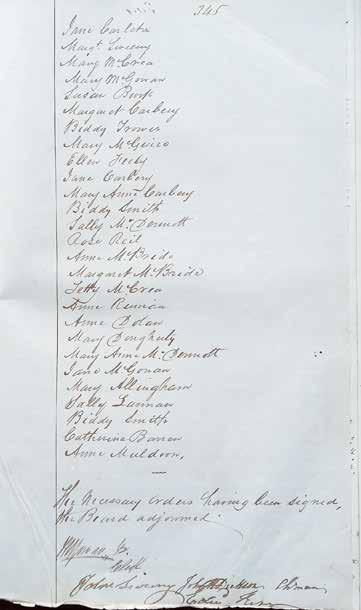 345
Jane Carleton
Margt Sweeny
Mary McCrea
Mary McGowan
Susan
Margaret Carbery
Biddy
Mary
Ellen
Jane Carbery
Mary Anne Carbery
Biddy Smith
Sally McDermott
Rose Reil
Anne McBride
Margaret McBride
Letty McCrea
Anne
Anne Dolan
Mary Dougherty
Mary Anne McDermott
Jane McGowan
Mary Allingham
Sally Lannan
Biddy Smith
Catherine Barran
Anne Muldoon,
The Necessary orders having been signed,
the Board adjourned
John